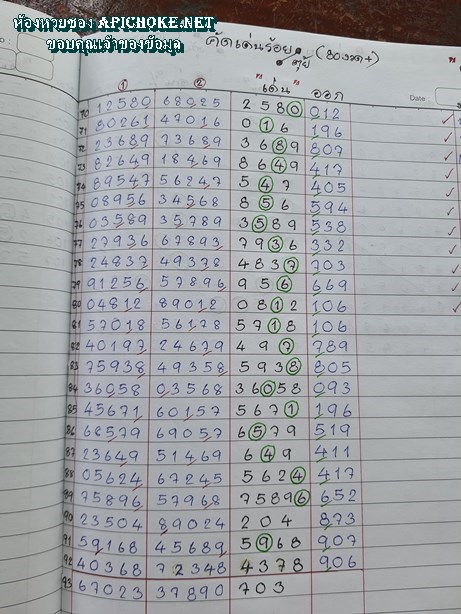 ห้องหวยซอง APICHOKE.NET
ขอบคุณเจ้าของข้อมูล
คัดเด่นร้อย (80งวด+)
ตุ้ย
① ② "เด่น" ออก Date
70 12580 68025 2580 012
71 80261 47016 016 196
72 23689 73689 3689 807
73 82649 18469 8649 417
74 89547 56247 547 405
75 08956 34568 856 594
76 03589 35789 3589 538
77 27936 67893 7936 332
78 24837 49378 4837 703
79 91256 57896 956 669
80 04812 89012 0812 106
81 57018 56178 5718 106
82 40197 24679 497 789
83 75938 49358 5938 805
84 36058 03568 36058 093
85 45671 60157 5671 196
86 68579 69057 6579 519
87 23649 51469 649 411
88 05624 67245 5624 417
89 75896 57968 75896 652
90 23504 89024 204 873
91 59168 45689 5968 907
92 40368 72348 4378 906
93 67023 37890 703